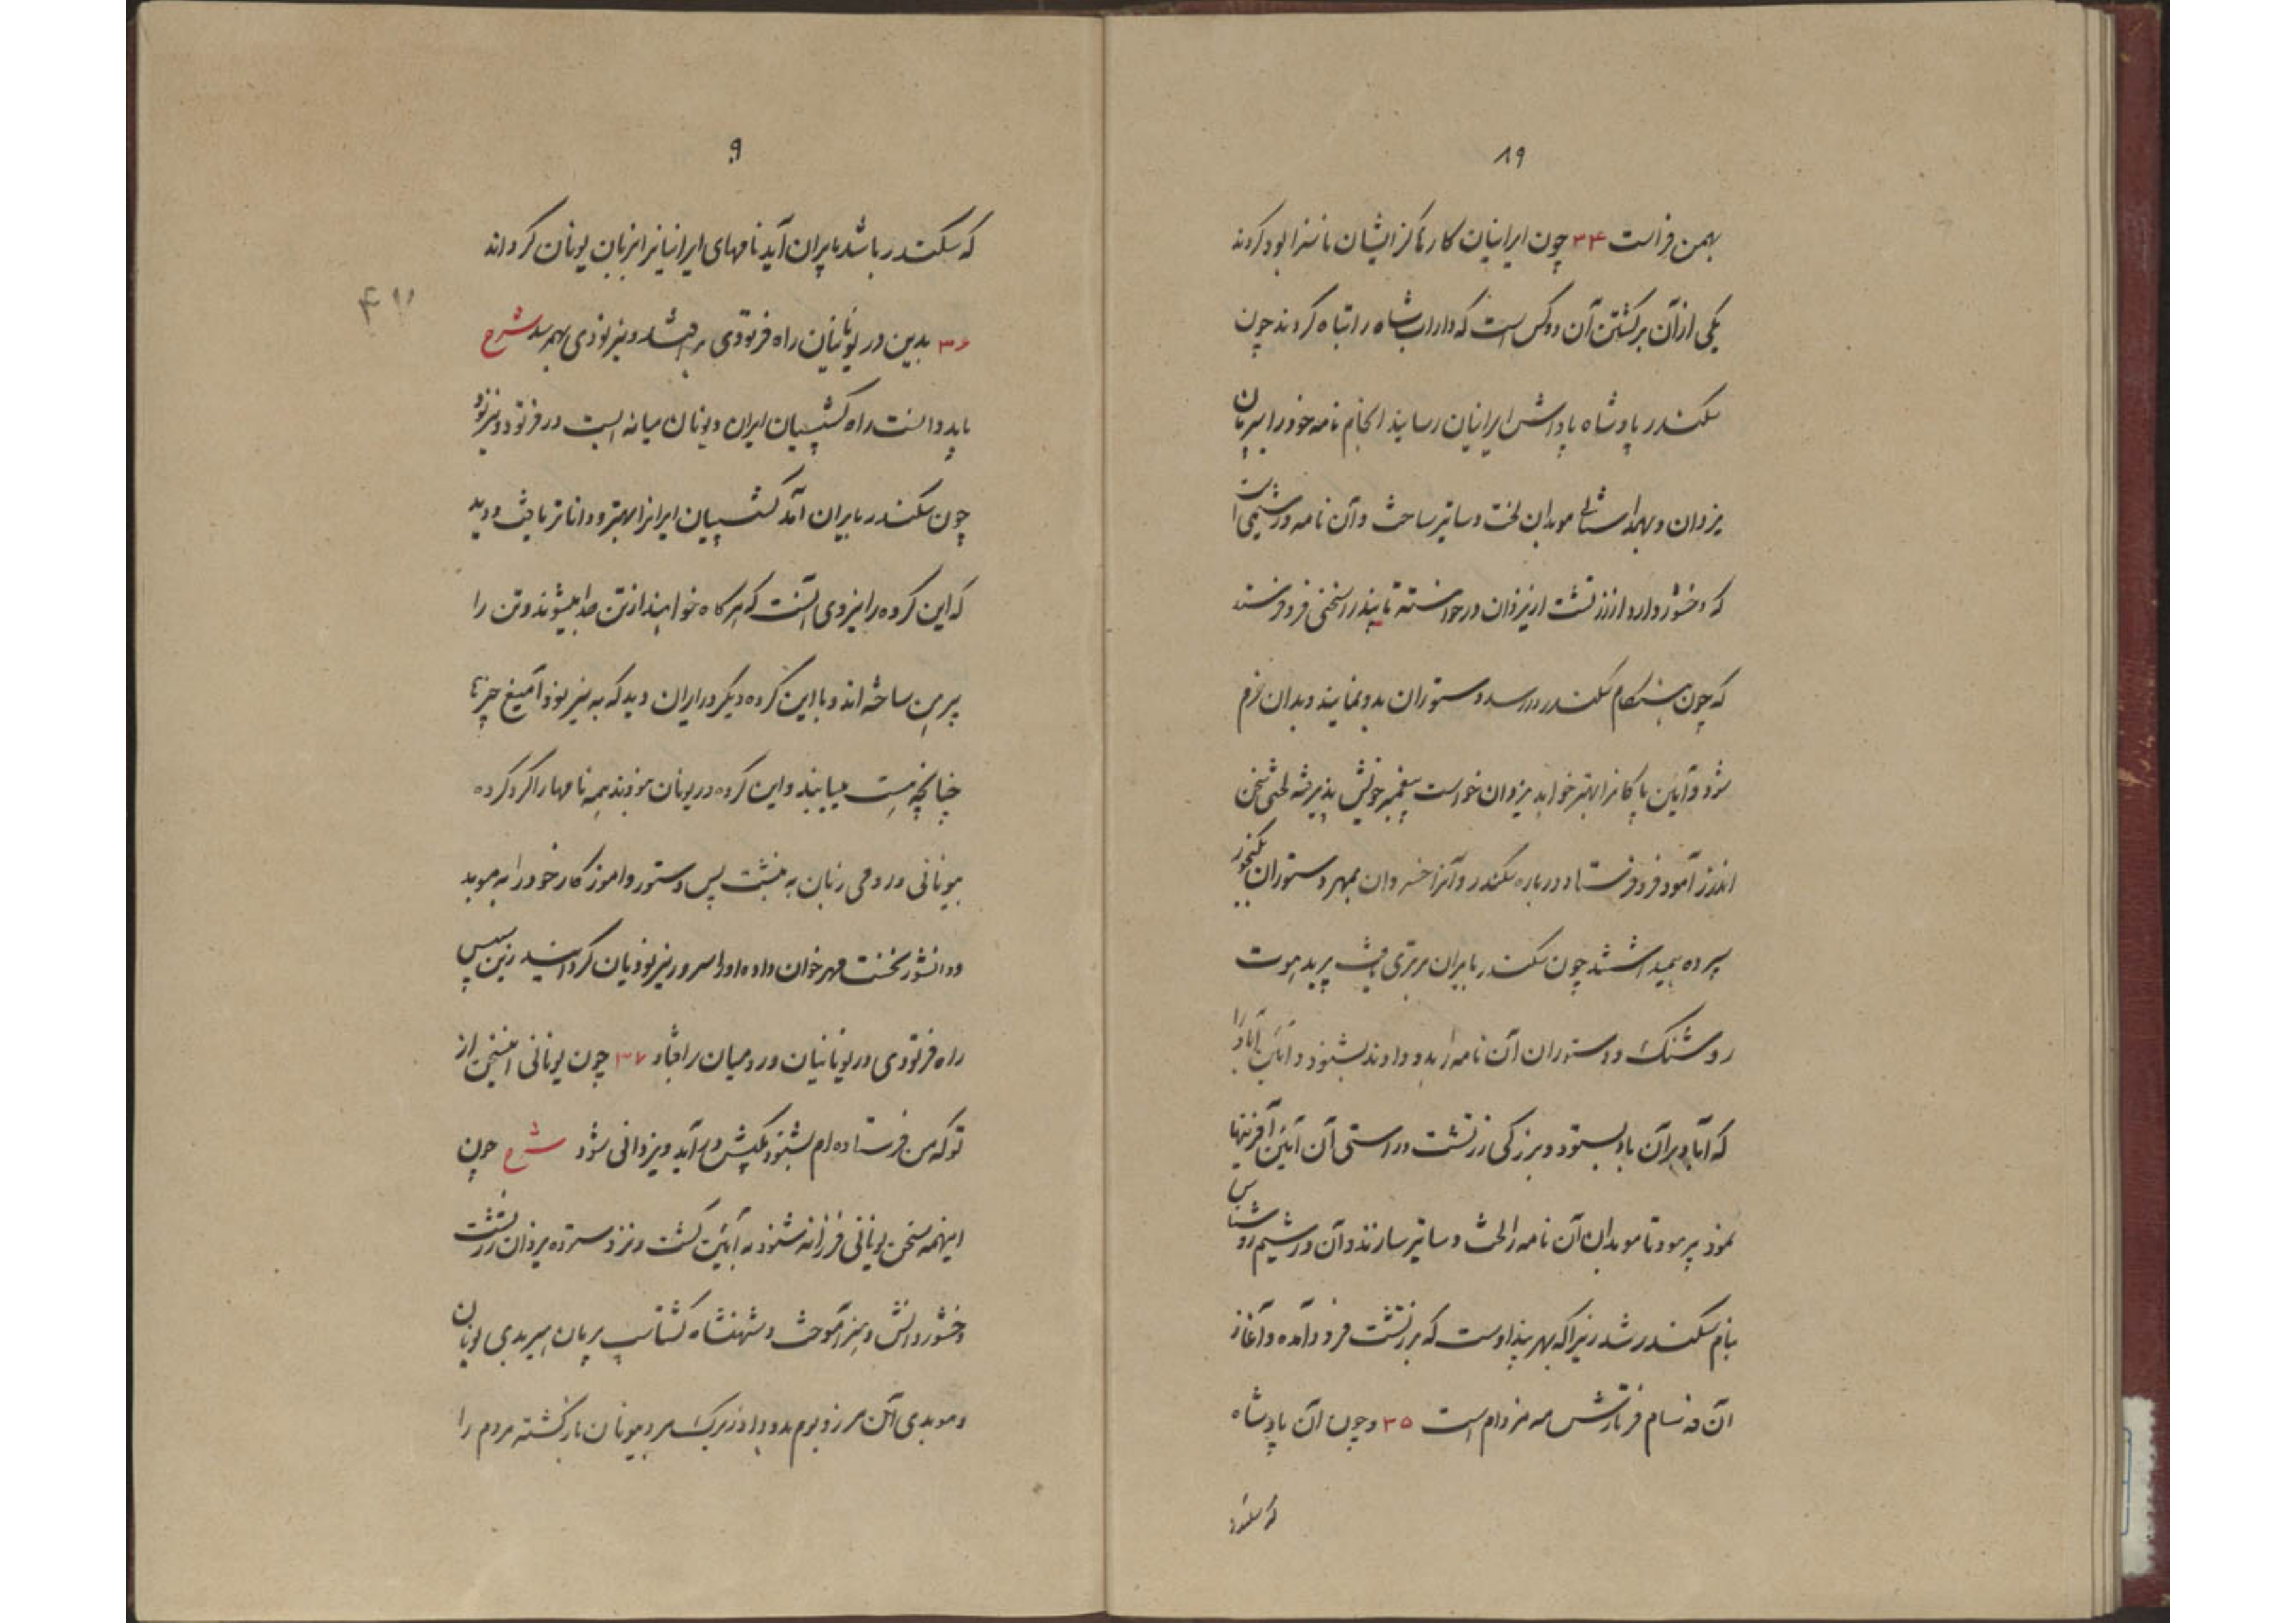 ۸۹
بهمن فراست ۳۴ چون ایرانیان کارهای کزایشان ناسزا بود کردند
یکی از آن برکشتن آن دو کس است که داراب شاه را تباه کردند چون
سکندر پادشاه پاداش ایرانیان رسانید انجام نامه خود را بپریان
یزدان و بهدانستان موبدان لخت دساتیر ساخت و آن نامه ورشیمی است
که وخشور دارد از زرتشت از یزدان درخواسته تا پندرا سخنی فرو فرستد
که چون هنکام سکندر در رسد دستوران بدو نمایند و بدان خرم
شود و آیین پاکانرا بهتر خواهد یزدان خواست پیغمبر خویش پذیرفته لختی سخن
اندرز آمود فرو فرستاد درباره سکندر و آنرا خسروان بمهر دستوران بکنجور
سپرده همیداشتند چون سکندر بایران برتری یافت پریدهوت
روشنک و دستوران آن نامه را بدو دادند بشنود و آیین آباد را
که آباد بر آن باد بستود و بزرکی زرتشت و راستی آن آیین آفرینها
نمود پرمود تا موبدان آن نامه را لخت دساتیر سازند و آن ورشیم روشناس
بنام سکندر شد زیرا که بهر پند اوست که بر زرتشت فرود آمده و آغاز
آن فه شام فرتارش مه مزدام است ۳۵ و چون آن پادشاه
که سکندر
۹۰
که سکندر باشد بایران آید نامهای ایرانیانرا بزبان یونان کرداند
۳۶ بدین در یونانیان راه فرتودی بر افتد و نیرنودی بهم رسد شرح
باید دانست راه کشسپیان ایران و یونان میانه ایست در فرتود و نیرنود
چون سکندر بایران آمد کشسپیان ایرانرا بهتر و داناتر یافت و دید
که این کروه را نیروی آنست که هر کاه خواهند از تن جدا میشوند و تن را
پیرهن ساخته اند و با این کروه دیکر در ایران دید که به نیرنود آمیغ چیزها
چنانچه هست مییابند و این کروه در یونان نبودند همه نامها را کرد کرده
بیونانی و رومی زبان به نبشت پس دستور و آموزکار خود را به موبد
و دانشور نخست مهر خوان داده او را سرور نیرنودیان کردانید زین سپس
راه فرتودی در یونانیان و رومیان برافتاد ۳۷ چون یونانی این سخن از
تو که من فرستاده ام بشنود بکیش در آید و یزدانی شود شرح چون
اینهمه سخن یونانی فرزانه شنود به آیین کشت و نزد ستوده یزدان زرتشت
وخشور دانش و هنر آموخت و شهنشاه کشتاسپ پریان هیربدی یونان
و موبدی آن مرز و بوم بدو داد زیرک مرد بیونان بازکشته مردم را